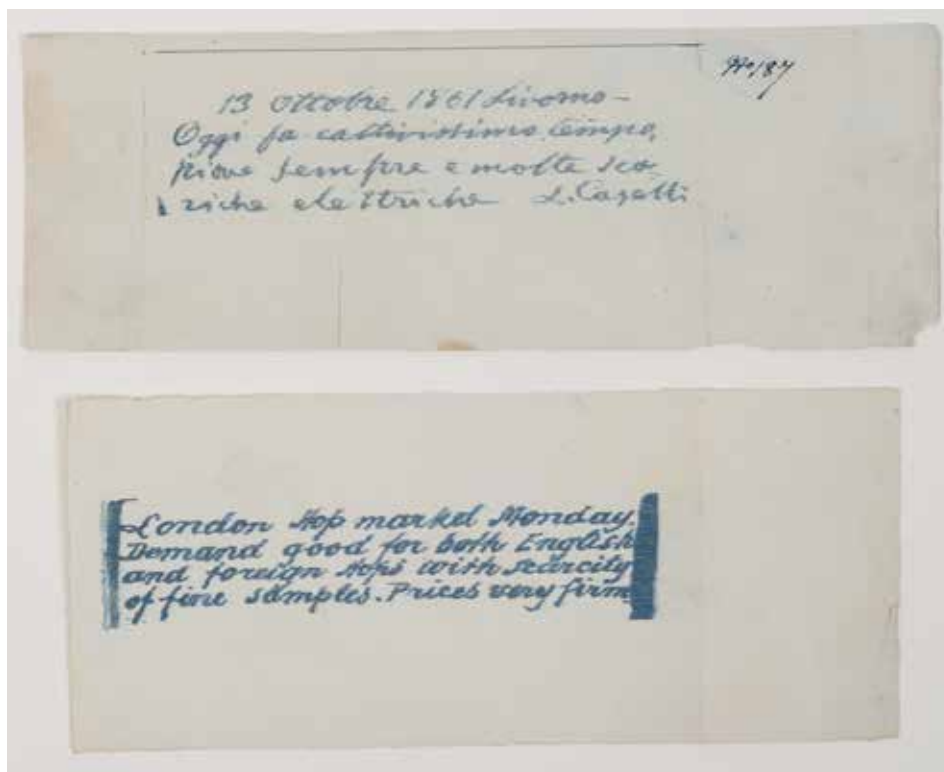 No 187
13 Ottobre 1861 Livorno -
Oggi fa cattivissimo tempo,
piove sempre e molte sca
riche elettriche L. Caselli
London Hop market Monday.
Demand good for both English
and foreign Hops with scarcity
of fine samples. Prices very firm